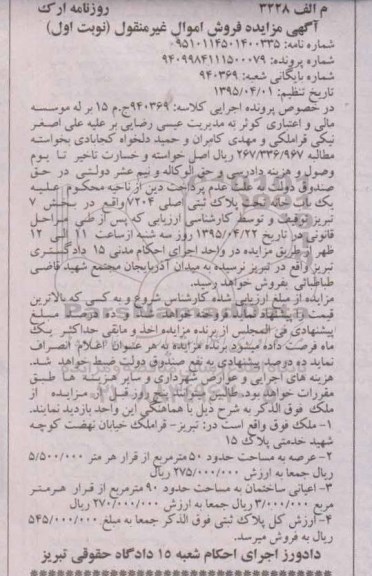 م الف ۳۲۲۸ روزنامه ارک
آگهی مزایده فروش اموال غیرمنقول (نوبت اول)
شماره نامه: ۹۵۱۰۱۱۴۵۰۱۴۰۰۳۳۵
شماره پرونده: ۹۴۰۹۹۸۴۱۱۱۵۰۰۰۷۹
شماره بایگانی شعبه: ۹۴۰۳۶۹
تاریخ تنظیم: ۱۳۹۵/۰۴/۰۱
در خصوص پرونده اجرایی کلاسه: ۹۴۰۳۶۹ج.م ۱۵ بر له موسسه
مالی و اعتباری کوثر به مدیریت عیسی رضایی بر علیه علی اصغر
نیکی قراملکی و مهدی کامران و حمید دلخواه کجابادی بخواسته
مطالبه ۲۶۷/۳۳۶/۹۶۷ ریال اصل خواسته و خسارت تاخیر تا یوم
وصول و هزینه دادرسی و حق الوکاله و نیم عشر دولتی در حق
صندوق دولت به علت عدم پرداخت دین از ناحیه محکوم علیه
یک باب خانه تحت پلاک ثبتی اصلی ۷۲۰۴ واقع در بخش ۷
تبریز توقیف و توسط کارشناسی ارزیابی که پس از طی مراحل
قانونی در تاریخ ۱۳۹۵/۰۴/۲۲ روز سه شنبه ازساعت ۱۱ الی ۱۲
ظهر از طریق مزایده در واحد اجرای احکام مدنی ۱۵ دادگستری
تبریز واقع در تبریز نرسیده به میدان آذربایجان مجتمع شهید قاضی
طباطبائی بفروش خواهد رسید.
مزایده از مبلغ ارزیابی شده کارشناس شروع و به کسی که بالاترین
قیمت را پیشنهاد نماید فروخته خواهد شد. ده درصد مبلغ
پیشنهادی فی المجلس از برنده مزایده اخذ و مابقی حداکثر یک
ماه فرصت داده میشود برنده مزایده به هر عنوان اعلام انصراف
نماید ده درصد پیشنهادی به نفع صندوق دولت ضبط خواهد شد.
هزینه های اجرایی و عوارض شهرداری و سایر هزینه ها طبق
مقررات خواهد بود. طالبین میتوانند پنج روز قبل از مزایده از
ملک فوق الذکر به شرح ذیل با هماهنگی این واحد بازدید نمایند.
۱- ملک فوق واقع است در: تبریز- قراملک خیابان نهضت کوچه
شهید خدمتی پلاک ۱۵
۲- عرصه به مساحت حدود ۵۰ مترمربع از قرار هر متر ۵/۵۰۰/۰۰۰
ریال جمعا به ارزش ۲۷۵/۰۰۰/۰۰۰ ریال
۳- اعیانی ساختمان به مساحت حدود ۹۰ مترمربع از قرار هرمتر
مربع ۳/۰۰۰/۰۰۰ ریال جمعا به ارزش ۲۷۰/۰۰۰/۰۰۰ ریال
۴- ارزش کل پلاک ثبتی فوق الذکر جمعا به مبلغ ۵۴۵/۰۰۰/۰۰۰
ریال به فروش میرسد.
دادورز اجرای احکام شعبه ۱۵ دادگاه حقوقی تبریز